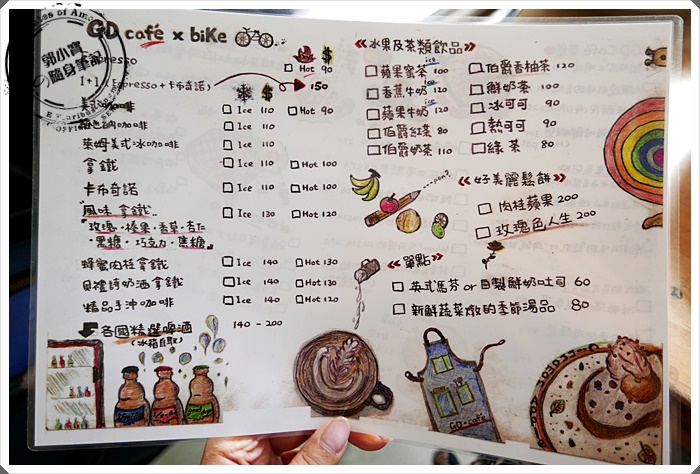 郭小寶
の隨身筆記
GD café x biKe
Espresso □ Hot 90
1+1 (Espresso+卡布奇諾) 150
美式咖啡 □ Ice 110 □ Hot 90
咖啡 □ Ice 110
萊姆美式冰咖啡 □ Ice 110
拿鐵 □ Ice 110 □ Hot 100
卡布奇諾 □ Ice 110 □ Hot 100
"風味拿鐵" □ Ice 130 □ Hot 120
"玫瑰・榛果・香草・杏仁
・黑糖・巧克力・焦糖"
蜂蜜肉桂拿鐵 □ Ice 140 □ Hot 130
貝禮詩奶酒拿鐵 □ Ice 140 □ Hot 130
精品手沖咖啡 □ Ice 140 □ Hot 120
各國精選啤酒 140-200
(冰箱自取)
《水果及茶類飲品》
□ 蘋果蜜茶 ice 100
□ 香蕉牛奶 ice 120
□ 蘋果牛奶 ice 120
□ 伯爵紅茶 80
□ 伯爵奶茶 100
□ 伯爵香柚茶 120
□ 鮮奶茶 100
□ 冰可可 90
□ 熱可可 90
□ 綠茶 80
《好美麗鬆餅》
□ 肉桂蘋果 200
□ 玫瑰色人生 200
《單點》
□ 英式馬芬 or 自製鮮奶吐司 60
□ 新鮮蔬菜燉的季節湯品 80
GD.café